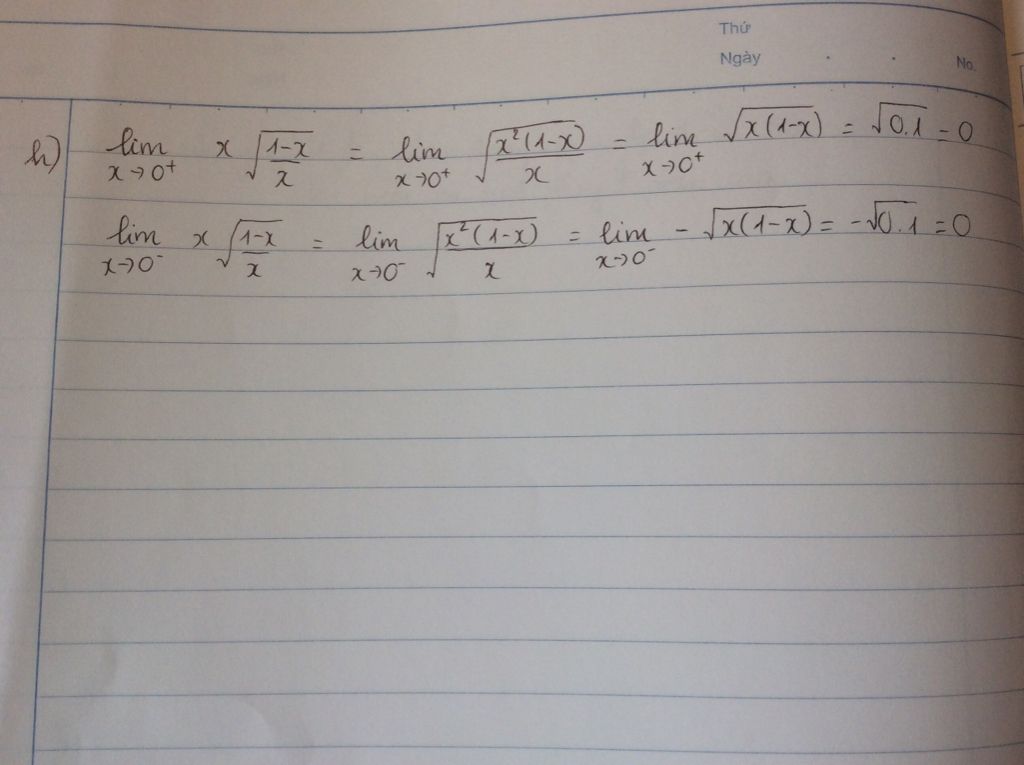 Thứ
Ngày . . No.
h) lim x→0⁺ x √((1-x)/x) = lim x→0⁺ √(x²(1-x)/x) = lim x→0⁺ √(x(1-x)) = √(0.1) = 0
lim x→0⁻ x √((1-x)/x) = lim x→0⁻ √(x²(1-x)/x) = lim x→0⁻ -√(x(1-x)) = -√(0.1) = 0